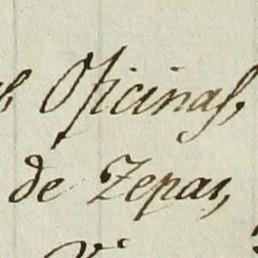 Oficinas,
de Zepas,